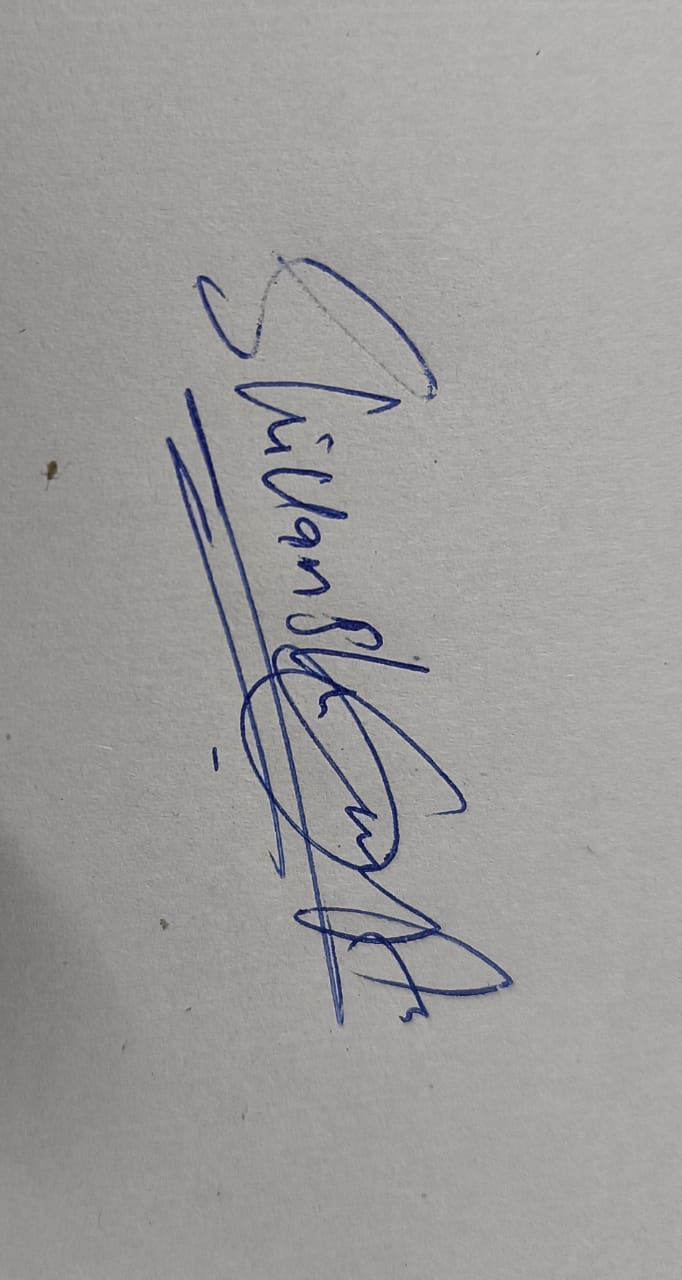 Shivansh Gupta